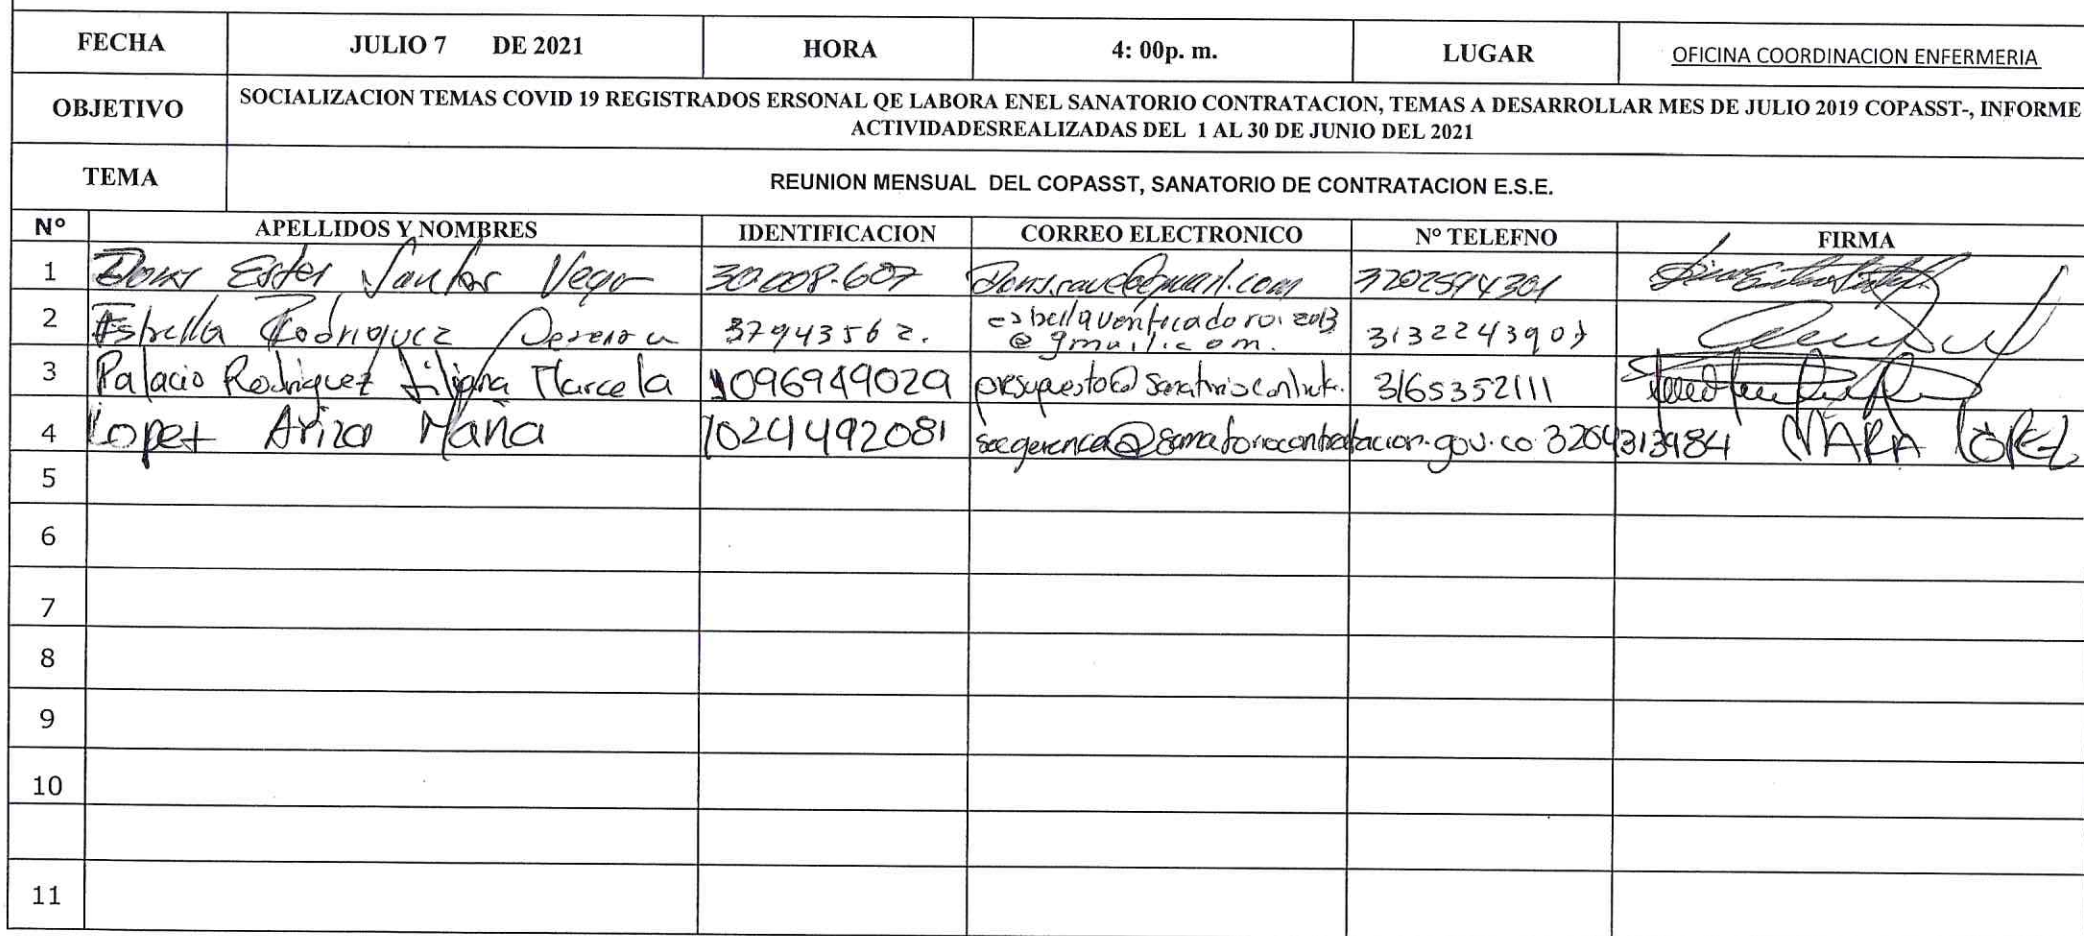 FECHA JULIO 7 DE 2021 HORA 4: 00p. m. LUGAR OFICINA COORDINACION ENFERMERIA
OBJETIVO SOCIALIZACION TEMAS COVID 19 REGISTRADOS ERSONAL QE LABORA ENEL SANATORIO CONTRATACION, TEMAS A DESARROLLAR MES DE JULIO 2019 COPASST-, INFORME
ACTIVIDADESREALIZADAS DEL 1 AL 30 DE JUNIO DEL 2021
TEMA REUNION MENSUAL DEL COPASST, SANATORIO DE CONTRATACION E.S.E.
Nº APELLIDOS Y NOMBRES IDENTIFICACION CORREO ELECTRONICO Nº TELEFNO FIRMA
1 Doris Ester Santos Vega 30.008.607 3202594301
2 Estrella Rodriguez 37943562. 3132243907
@gmail.com.
3 Palacio Rodriguez Liliana Marcela 1096949029 3165352111
4 Lopez Ariza Maria 1024492081 secgerencia@sanatoriocontratacion.gov.co 3204313984 MARA LÓPEZ
5
6
7
8
9
10
11